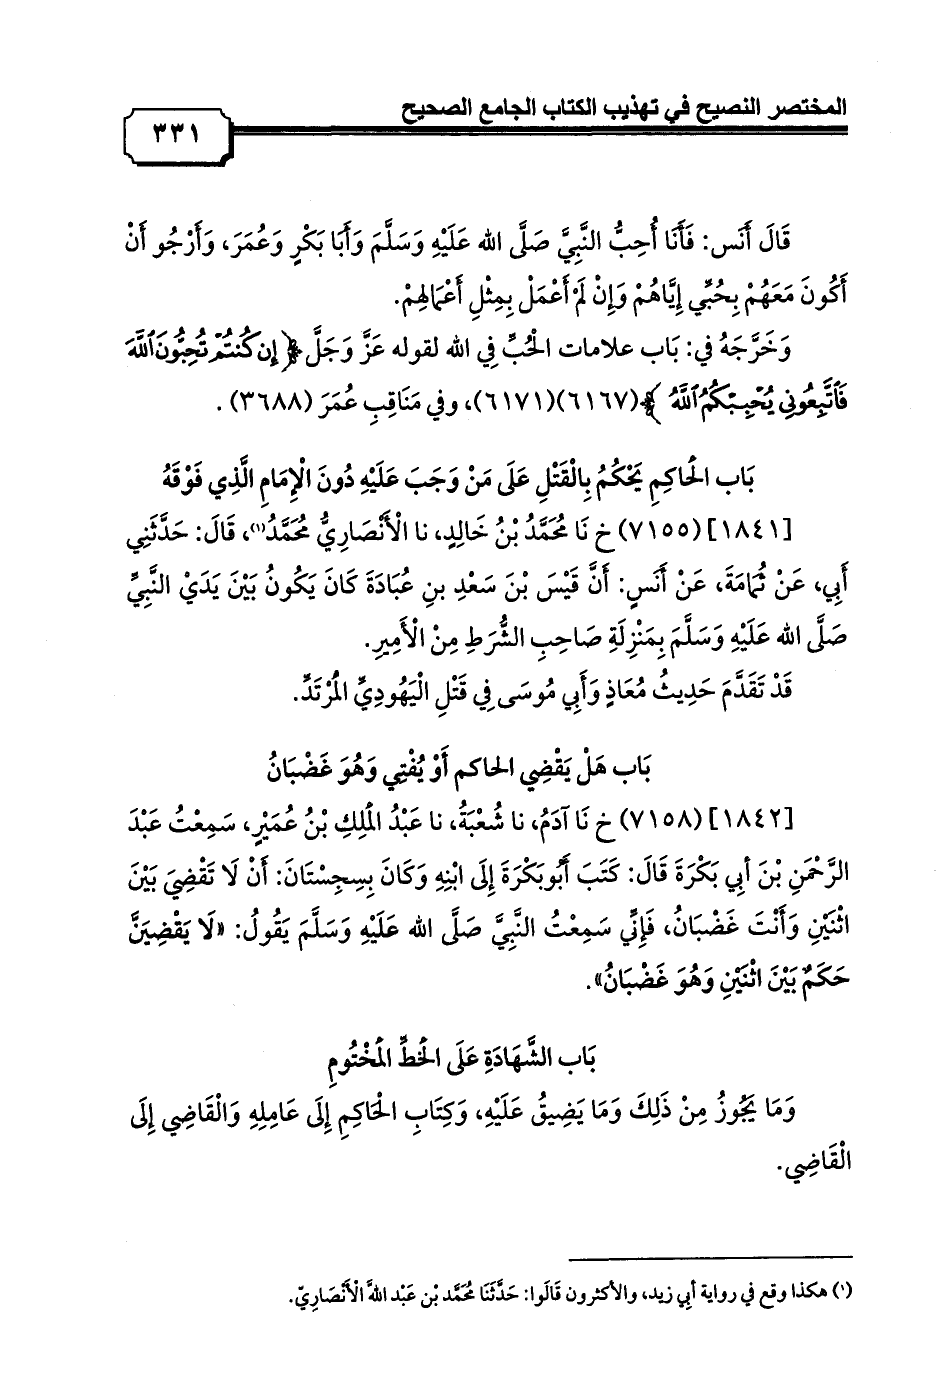 المختصر النصيح في تهذيب الكتاب الجامع الصحيح
٣٣١
قَالَ أَنَس: فَأَنَا أُحِبُّ النَّبِيَّ صَلَّى الله عَلَيْهِ وَسَلَّمَ وَأَبَا بَكْرٍ وَعُمَرَ، وَأَرْجُو أَنْ
أَكُونَ مَعَهُمْ بِحُبِّي إِيَّاهُمْ وَإِنْ لَمْ أَعْمَلْ بِمِثْلِ أَعْمَالِهِمْ.
وَخَرَّجَهُ في: بَاب علامات الْحُبِّ فِي الله لقوله عَزَّ وَجَلَّ ﴿إِن كُنتُمْ تُحِبُّونَ ٱللَّهَ
فَٱتَّبِعُونِي يُحْبِبْكُمُ ٱللَّهُ﴾ (٦١٦٧)(٦١٧١)، وفي مَنَاقِبِ عُمَرَ (٣٦٨٨).
بَاب الْحَاكِمِ يَحْكُمُ بِالْقَتْلِ عَلَى مَنْ وَجَبَ عَلَيْهِ دُونَ الْإِمَامِ الَّذِي فَوْقَهُ
[١٨٤١] (٧١٥٥) خ نَا مُحَمَّدُ بْنُ خَالِدٍ، نا الْأَنْصَارِيُّ مُحَمَّدُ(١)، قَالَ: حَدَّثَنِي
أَبِي، عَنْ ثُمَامَةَ، عَنْ أَنَسٍ: أَنَّ قَيْسَ بْنَ سَعْدِ بنِ عُبَادَةَ كَانَ يَكُونُ بَيْنَ يَدَيْ النَّبِيِّ
صَلَّى الله عَلَيْهِ وَسَلَّمَ بِمَنْزِلَةِ صَاحِبِ الشُّرَطِ مِنْ الْأَمِيرِ.
قَدْ تَقَدَّمَ حَدِيثُ مُعَاذٍ وَأَبِي مُوسَى فِي قَتْلِ الْيَهُودِيِّ الْمُرْتَدِّ.
بَاب هَلْ يَقْضِي الحاكم أَوْ يُفْتِي وَهُوَ غَضْبَانُ
[١٨٤٢] (٧١٥٨) خ نَا آدَمُ، نا شُعْبَةُ، نا عَبْدُ الْمَلِكِ بْنُ عُمَيْرٍ، سَمِعْتُ عَبْدَ
الرَّحْمَنِ بْنَ أبِي بَكْرَةَ قَالَ: كَتَبَ أَبُو بَكْرَةَ إِلَى ابْنِهِ وَكَانَ بِسِجِسْتَانَ: أَنْ لَا تَقْضِيَ بَيْنَ
اثْنَيْنِ وَأَنْتَ غَضْبَانُ، فَإِنِّي سَمِعْتُ النَّبِيَّ صَلَّى الله عَلَيْهِ وَسَلَّمَ يَقُولُ: «لَا يَقْضِيَنَّ
حَكَمٌ بَيْنَ اثْنَيْنِ وَهُوَ غَضْبَانُ».
بَاب الشَّهَادَةِ عَلَى الْخَطِّ الْمَخْتُومِ
وَمَا يَجُوزُ مِنْ ذَلِكَ وَمَا يَضِيقُ عَلَيْهِ، وَكِتَابِ الْحَاكِمِ إِلَى عَامِلِهِ وَالْقَاضِي إِلَى
الْقَاضِي.
(١) هكذا وقع في رواية أبي زيد، والأكثرون قَالُوا: حَدَّثَنَا مُحَمَّد بْن عَبْد اللهَّ الْأَنْصَارِيّ.